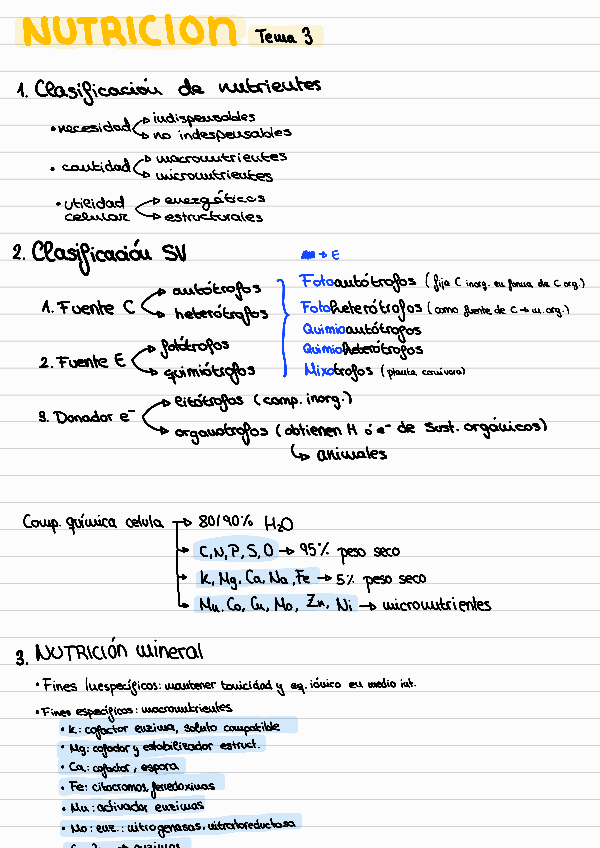 NUTRICION Tema 3
1. Clasificación de nutrientes
• necesidad → indispensables
→ no indespensables
• cantidad → macronutrientes
→ micronutrientes
• utilidad celular → energéticos
→ estructurales
2. Clasificación SV
→ E
1. Fuente C → autótrofos
→ heterótrofos
2. Fuente E → fotótrofos
→ quimiótrofos
Fotoautótrofos (fija C inorg. en forma de C org.)
Fotoheterótrofos (como fuente de C → m. org.)
Quimioautótrofos
Quimioheterótrofos
Mixotrofos (planta carnívora)
3. Donador e⁻ → litótrofos (comp. inorg.)
→ organotrofos (obtienen H ó e⁻ de sust. orgánicos)
↳ animales
Comp. química celula → 80/90% H₂O
→ C, N, P, S, O → 95% peso seco
→ K, Mg, Ca, Na, Fe → 5% peso seco
→ Mn, Co, Cu, Mo, Zn, Ni → micronutrientes
3. NUTRICIÓN mineral
• Fines inespecíficos: mantener tonicidad y eq. iónico en medio int.
• Fines específicos: macronutrientes
• K: cofactor enzima, soluto compatible
• Mg: cofactor y estabilizador estruct.
• Ca: cofactor, espora
• Fe: citocromos, ferredoxinas
• Mn: activador enzimas
• Mo: enz.: nitrogenasas, nitratoreductasa